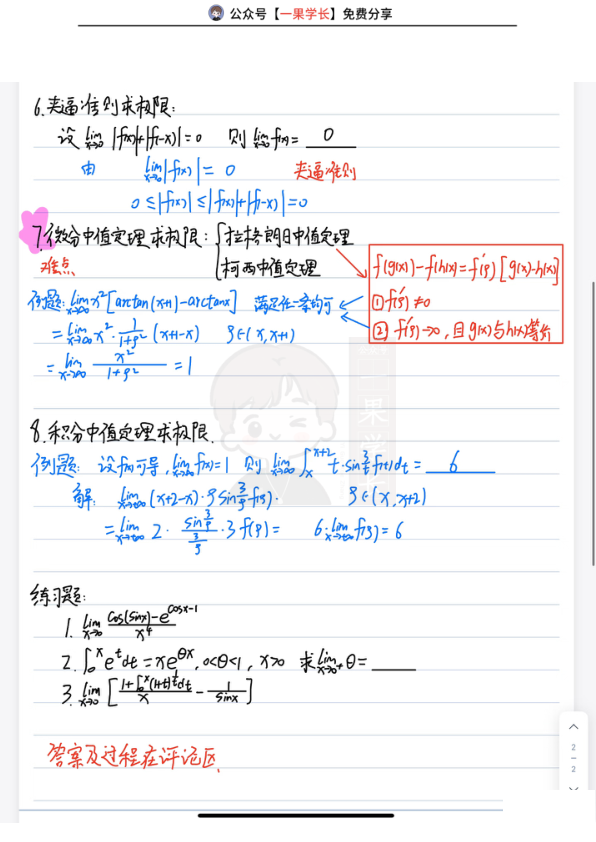 公众号【一果学长】免费分享
6.夹逼准则求极限:
设 lim x→0 |f(x)|+|f(-x)|=0 则 lim x→0 f(x)= 0
由 lim x→0 |f(x)| = 0 夹逼准则
0≤|f(x)|≤|f(x)|+|f(-x)|=0
7.微分中值定理求极限: { 拉格朗日中值定理
难点 柯西中值定理
f(g(x))-f(h(x))=f'(ρ)[g(x)-h(x)]
① f'(ρ)≠0
② f'(ρ)→0, 且g(x)与h(x)等价
例题: lim x→∞ x²[arctan(x+1)-arctanx] 满足任一条均可
= lim x→∞ x²·1/(1+ρ²) (x+1-x) ρ∈(x,x+1)
= lim x→∞ x²/(1+ρ²) = 1
8.积分中值定理求极限.
例题: 设f(x)可导, lim x→∞ f(x)=1 则 lim x→∞ ∫ₓ^(x+2) t·sin 3/t f(t)dt = 6
解: lim x→+∞ (x+2-x)·ρ sin 3/ρ f(ρ). ρ∈(x,x+2)
= lim x→+∞ 2·(sin 3/ρ)/(3/ρ)·3f(ρ)= 6·lim x→+∞ f(ρ)=6
练习题:
1. lim x→0 (cos(sinx)-e^(cosx-1))/x⁴
2. ∫₀ˣ eᵗdt = xe^(θx), 0<θ<1, x>0 求 lim x→0⁺ θ=
3. lim x→0 [(1+∫₀ˣ(1+t)^(1/t)dt)/x - 1/sinx]
答案及过程在评论区.
一果学长
2
2